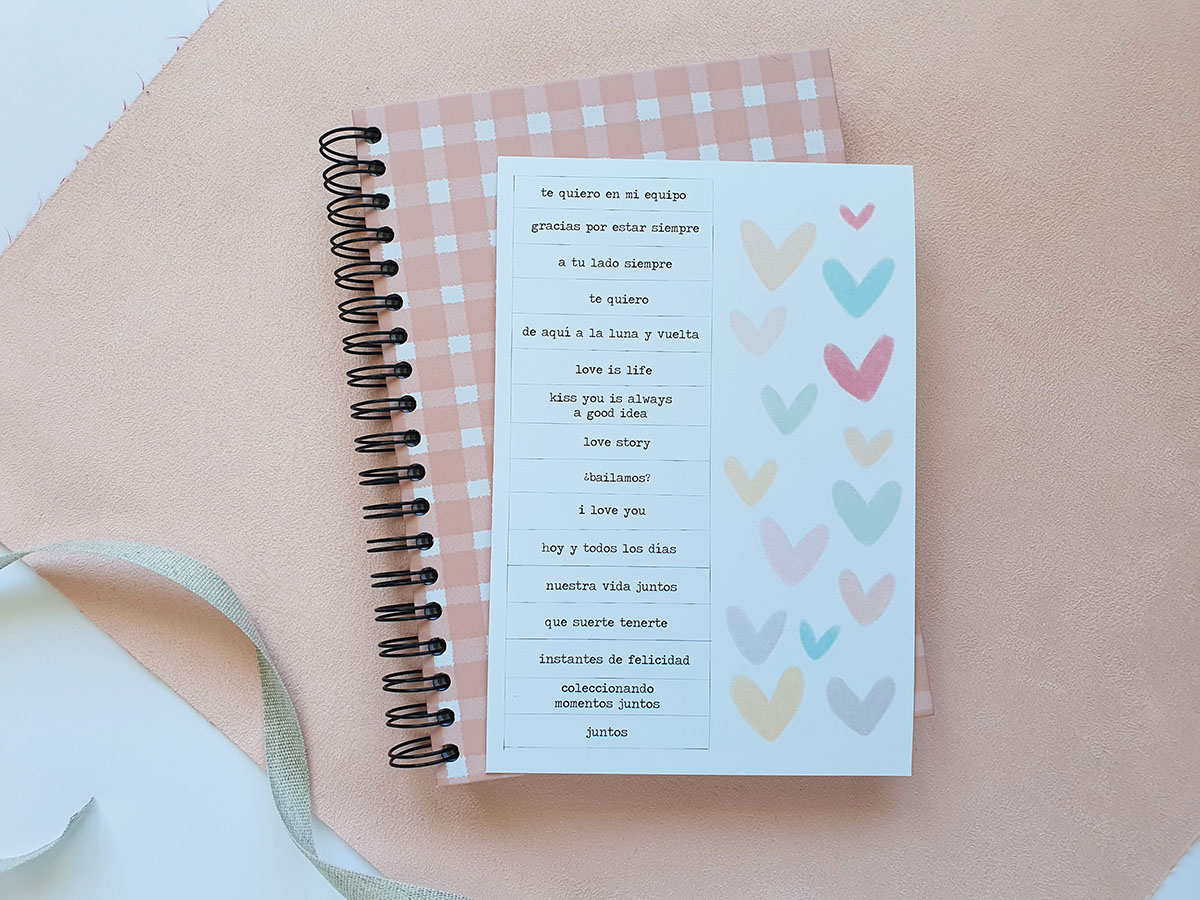 te quiero en mi equipo
gracias por estar siempre
a tu lado siempre
te quiero
de aquí a la luna y vuelta
love is life
kiss you is always
a good idea
love story
¿bailamos?
i love you
hoy y todos los días
nuestra vida juntos
que suerte tenerte
instantes de felicidad
coleccionando
momentos juntos
juntos